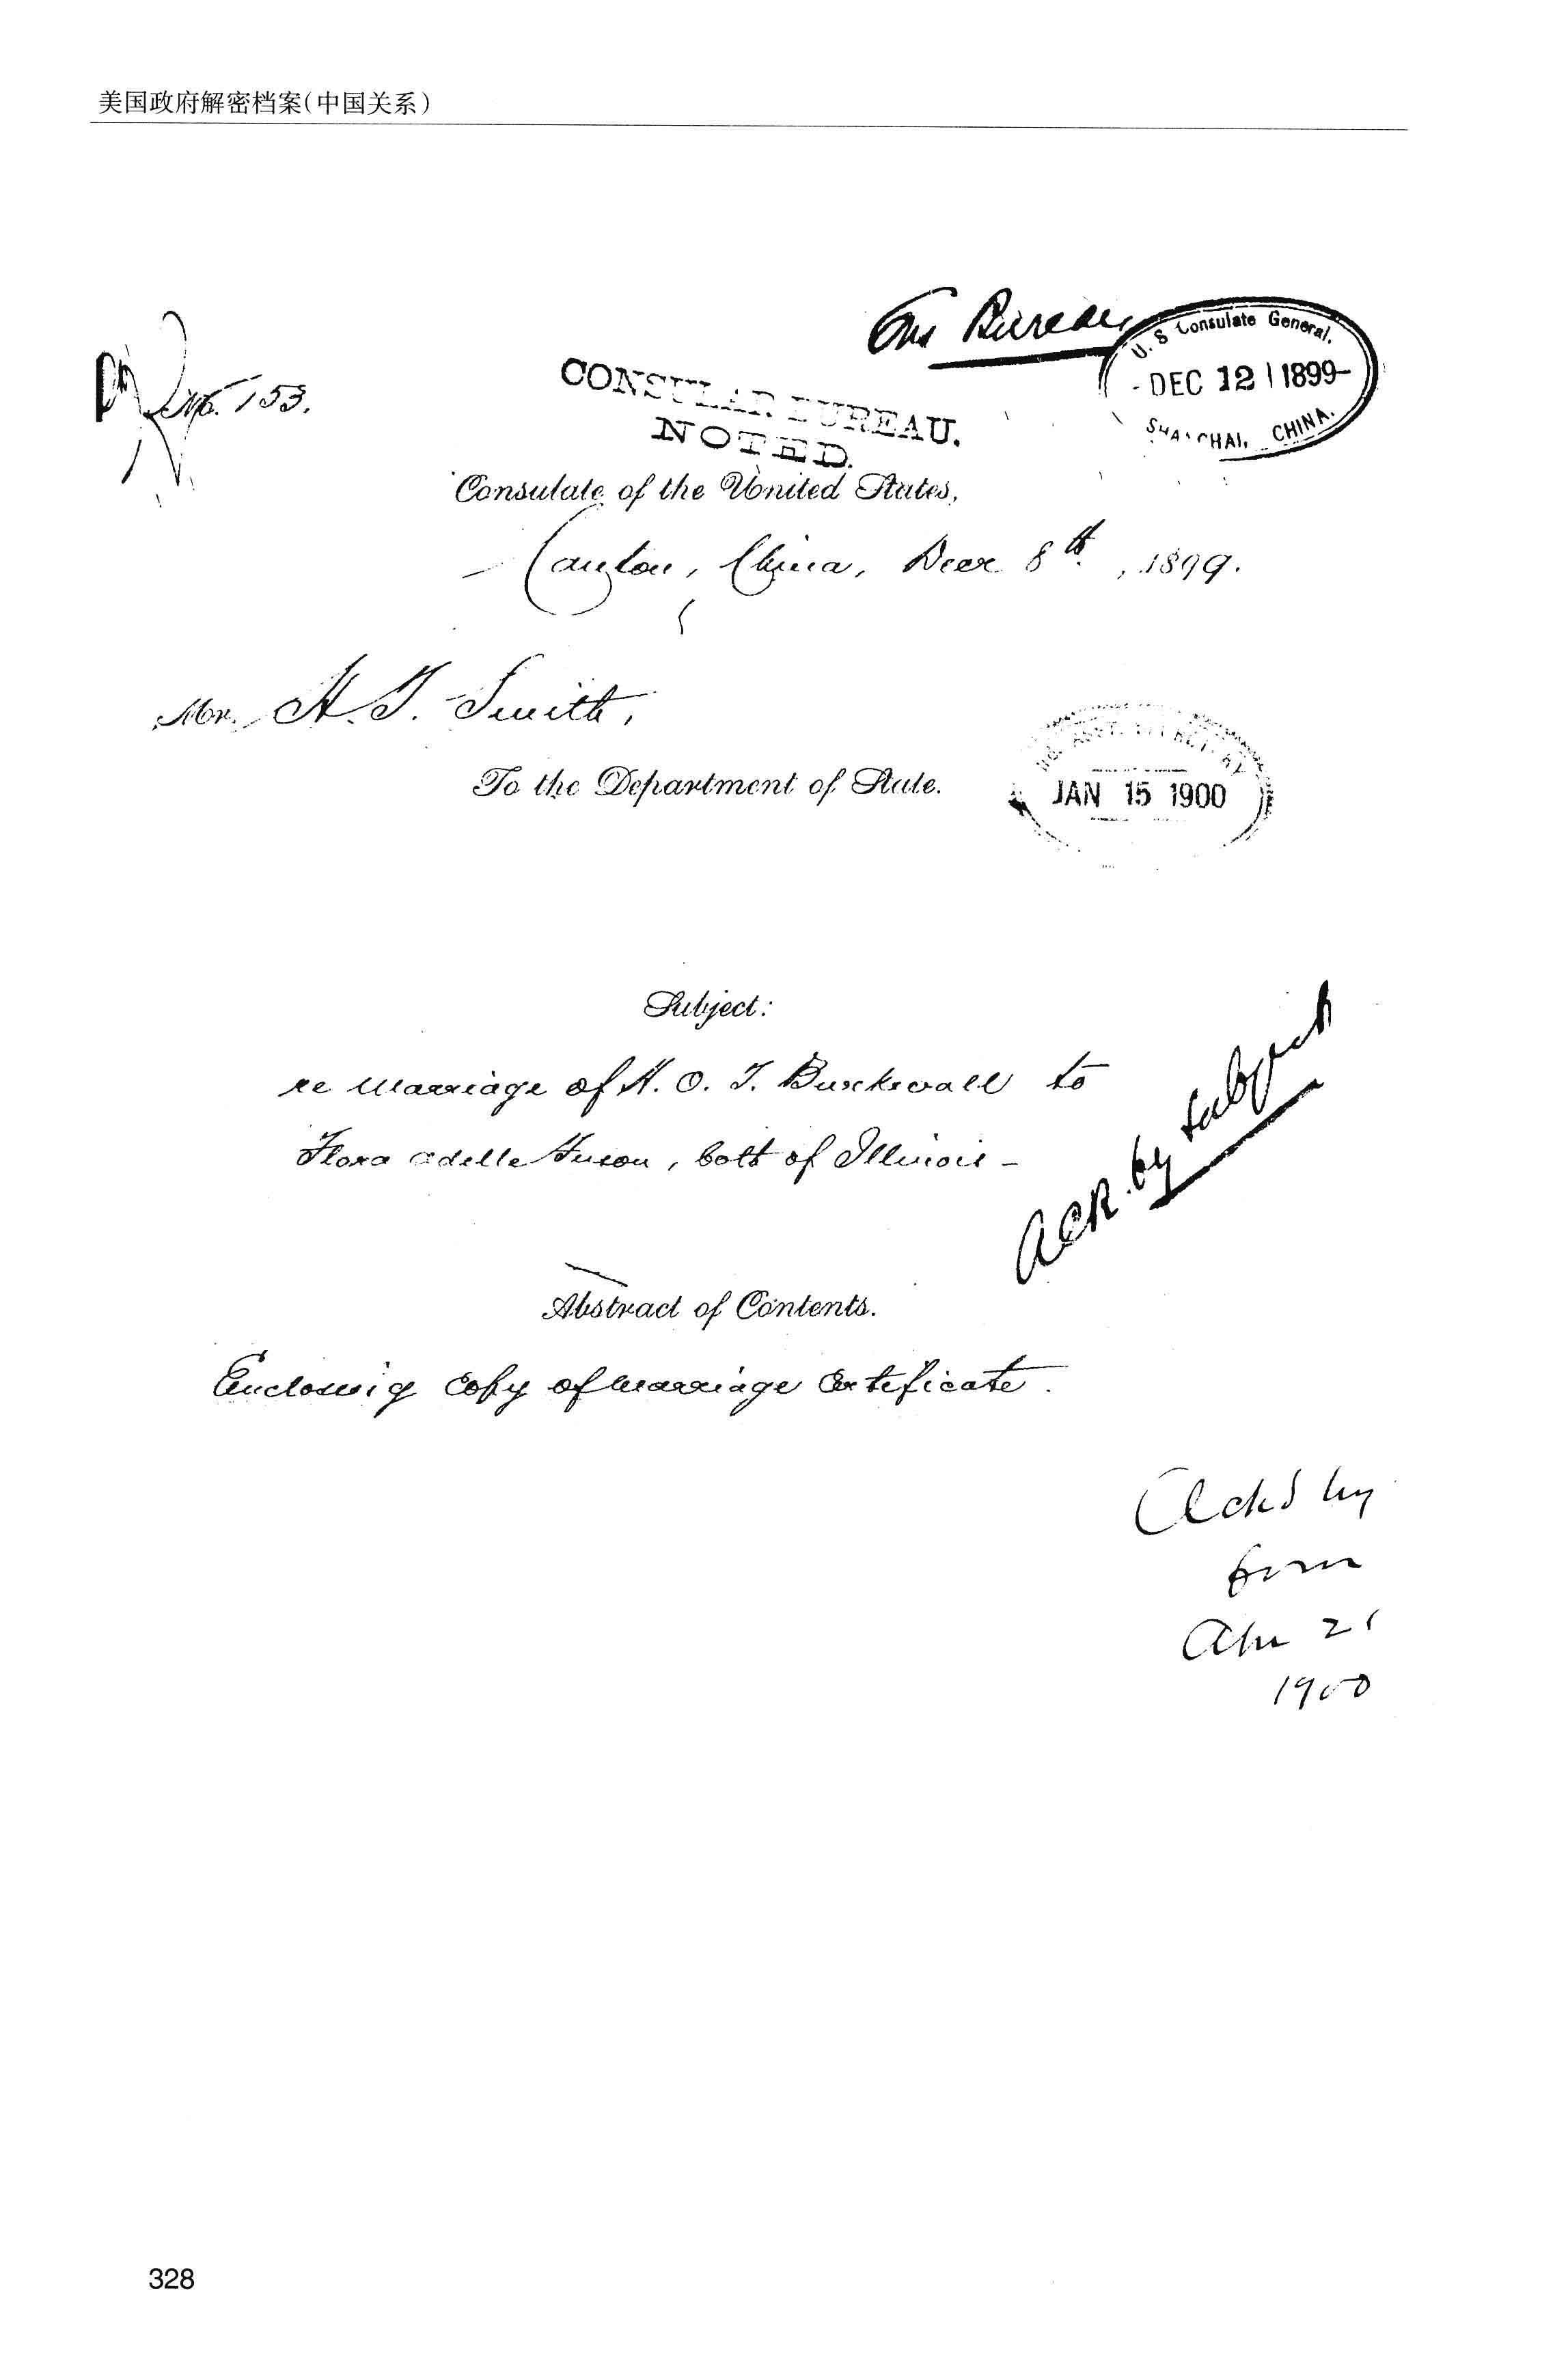 美国政府解密档案(中国关系)
Bureau
U.S. Consulate General.
DEC 12 1899
SHANGHAI, CHINA.
No. 153.
CONSULAR BUREAU.
NOTED.
Consulate of the United States,
Canton, China, Decr 8th, 1899.
Mr. H. T. Smith,
To the Department of State.
JAN 15 1900
Subject:
re marriage of H. O. T. Burkwall to
Flora Adelle, both of Illinois -
Ack. by subject
Abstract of Contents.
Enclosing copy of marriage certificate.
Ackd by
form
Apr 21
1900
328